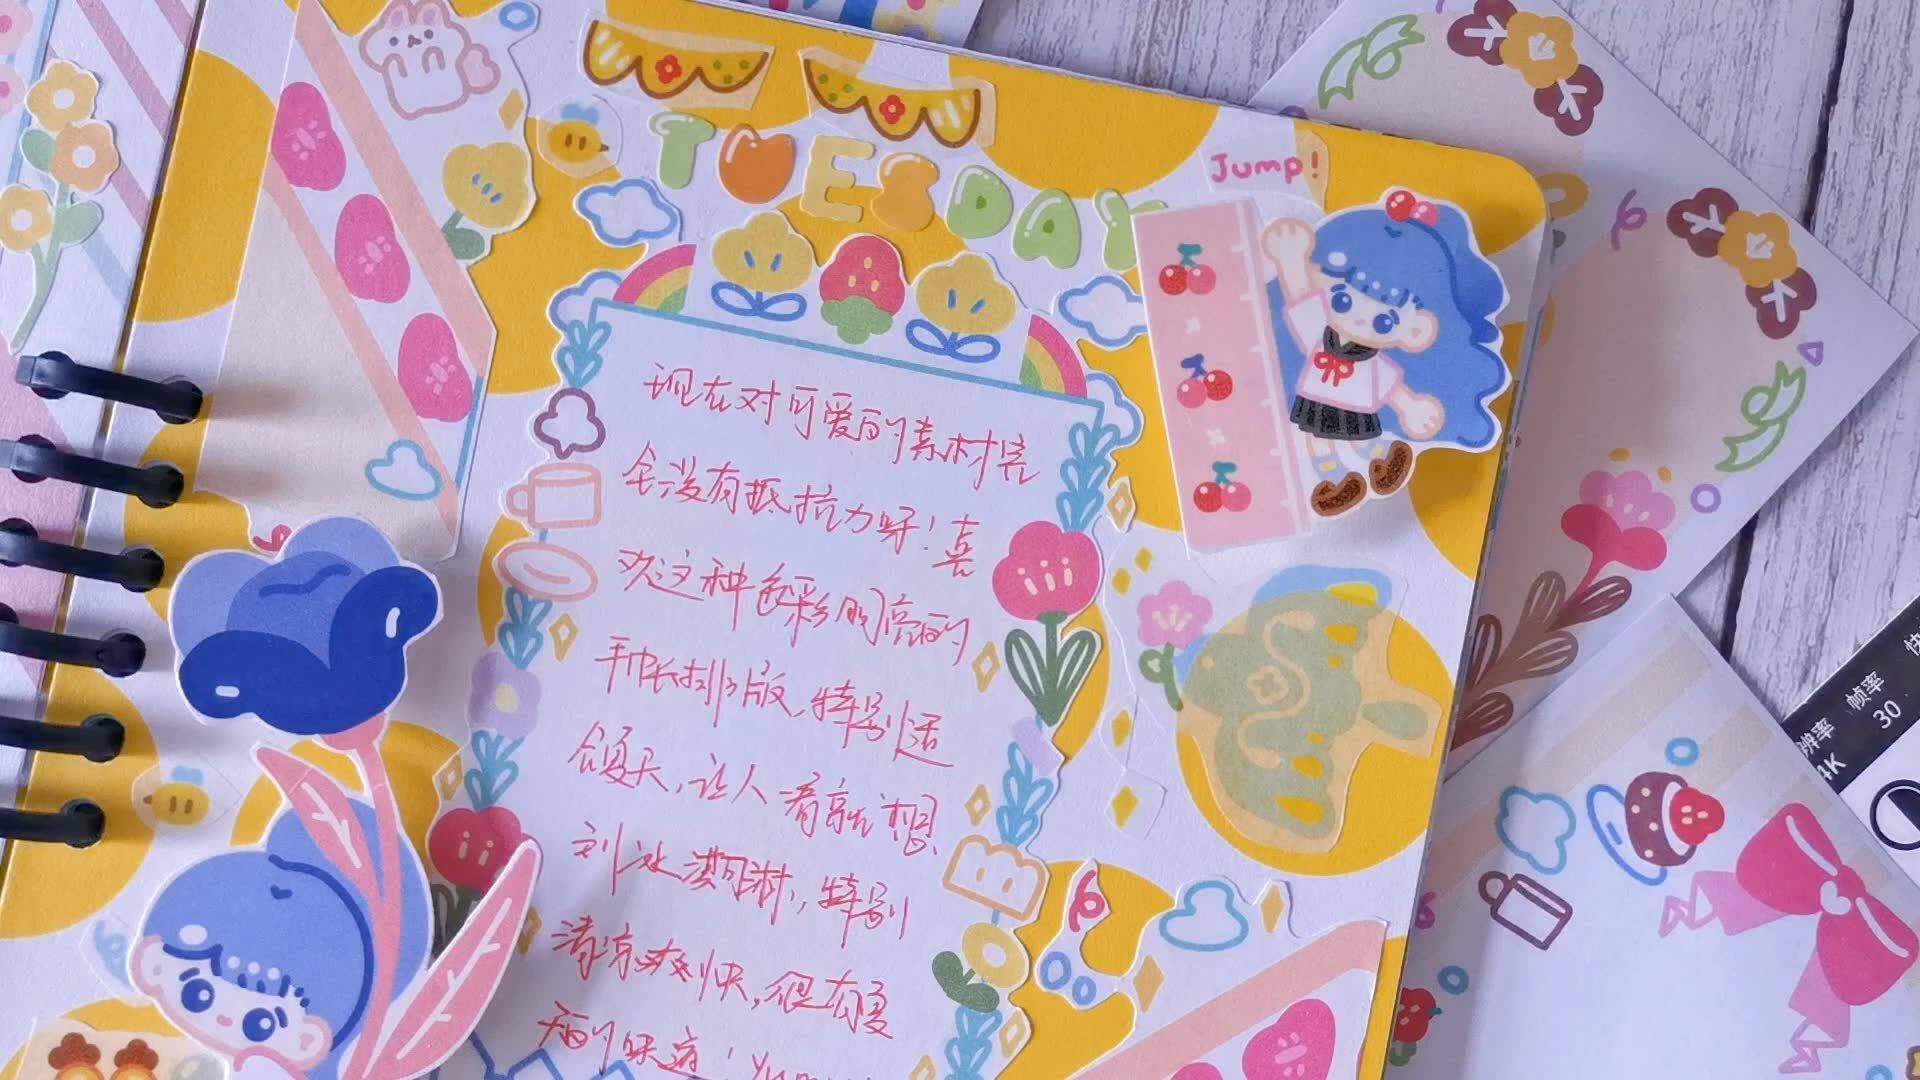 TUESDAY
Jump!
现在对可爱的素材完
全没有抵抗力呀！喜
欢这种色彩明亮的
手帐排版，特别适
合夏天，让人看就想
到冰淇淋，特别
清凉爽快，很有夏
天的味道！Yu
快
帧率
30
辨率
4K